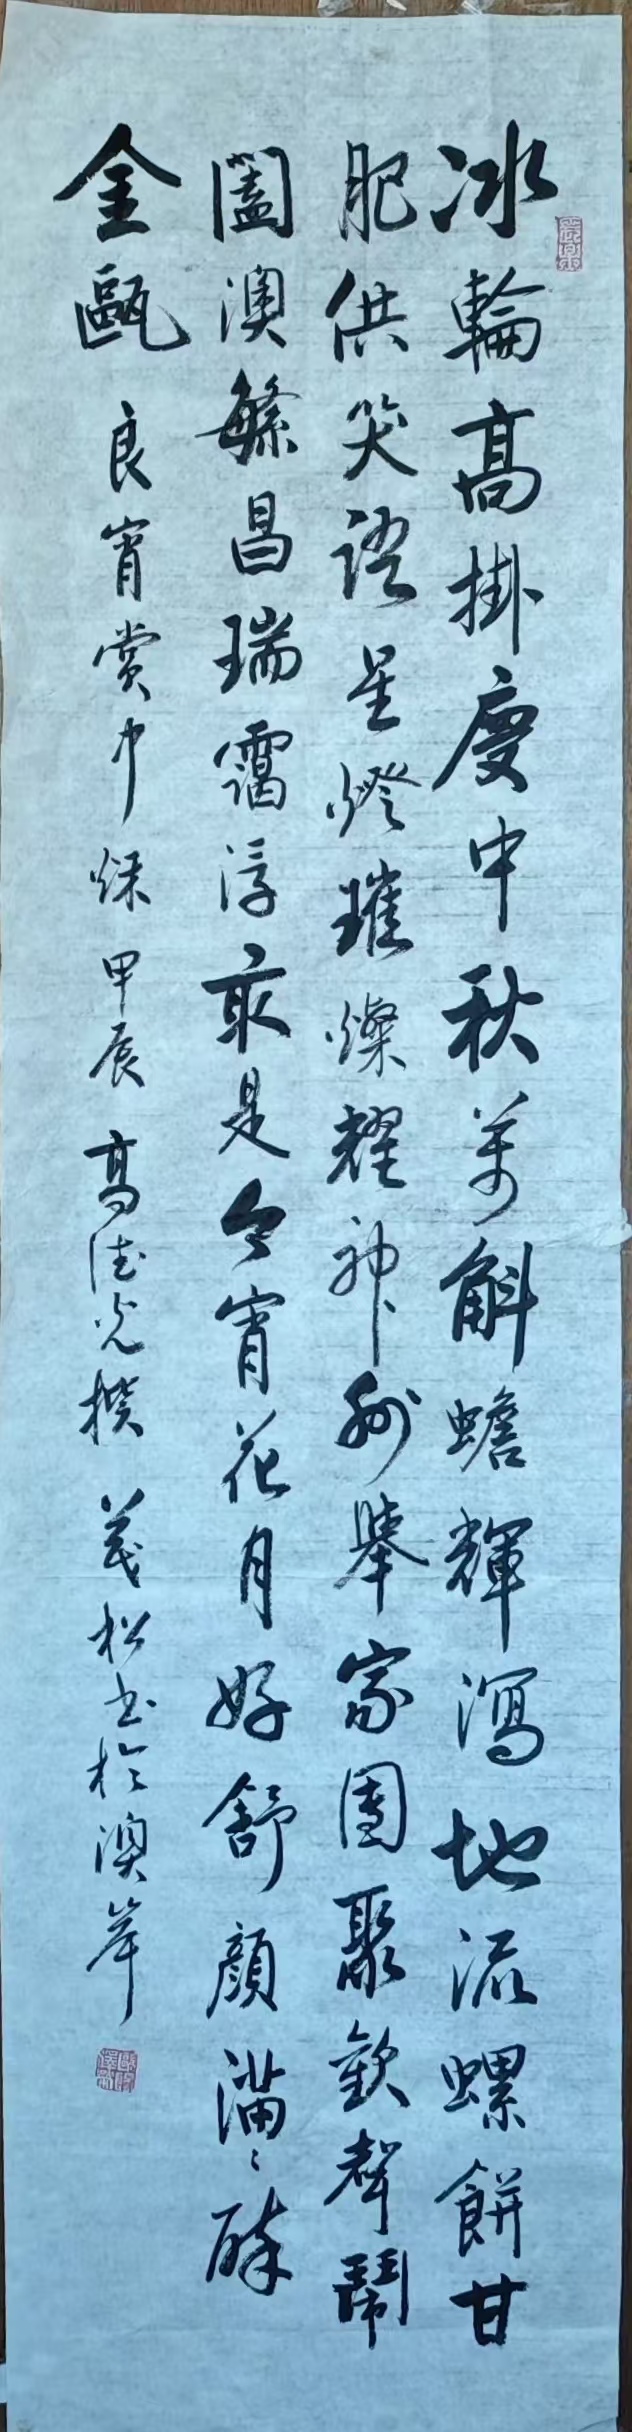 冰輪高掛慶中秋萬斛蟾輝瀉地流螺餅甘
肥供笑語星燈璀燦耀神州舉家團聚歡聲鬧
闔澳繁昌瑞靄浮最是今宵花月好舒顏滿滿醉
金甌
良宵賞中秌 甲辰 高德光撰 義松書於澳岸